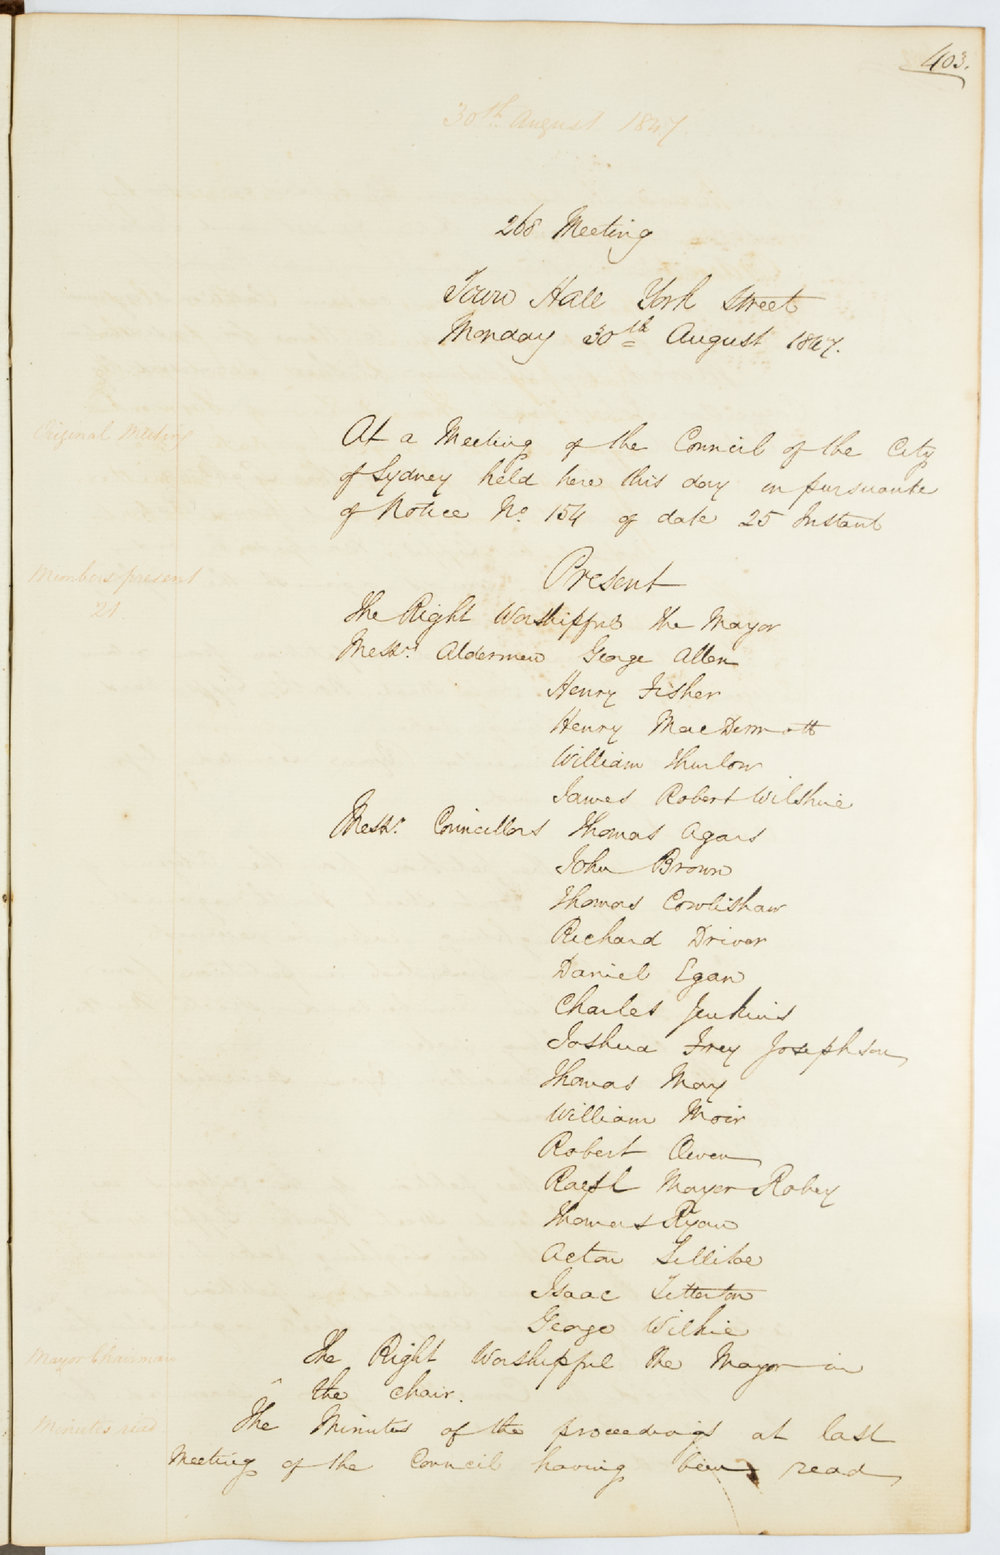 403.
30th August 1847
268 Meeting
Town Hall York Street
Monday 30th August 1847.
Original Meeting
At a Meeting of the Council of the City
of Sydney held here this day in pursuance
of Notice No. 154 of date 25 Instant
Members present
21
Present
The Right Worshipful the Mayor
Messrs. Aldermen George Allen
Henry Fisher
Henry MacDermott
William Thurlow
James Robert Wilshire
Messrs. Councillors Thomas Agars
John Brown
Thomas Cowlishaw
Richard Driver
Daniel Egan
Charles Jenkins
Joshua Frey Josephson
Thomas May
William Moir
Robert Owen
Ralph Mayer Robey
Thomas Ryan
Acton Sillitoe
Isaac Titterton
George Wilkie
Mayor Chairman
The Right Worshipful the Mayor in
the chair.
Minutes read
The Minutes of the proceedings at last
Meeting of the Council having been read